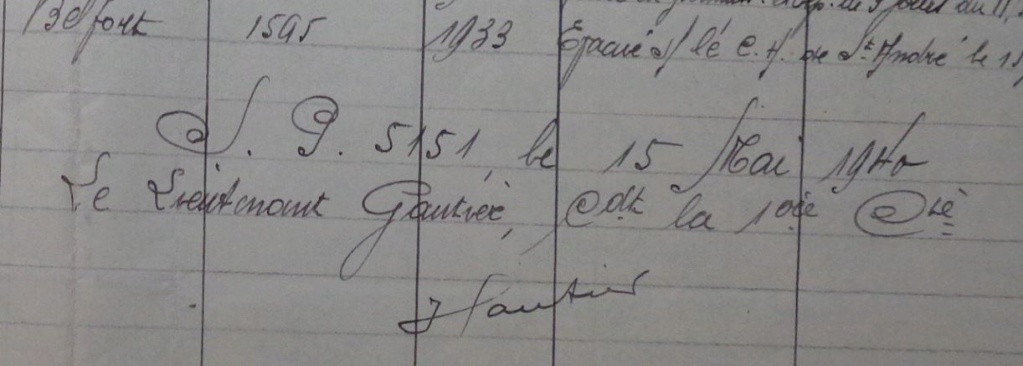 Belfort 1595 1933 Evacué s/ le C.H. de St André le 15
S. P. 5151, le 15 Mai 1940
Le Lieutenant Gautier, Cdt la 1ère Cie
Gautier